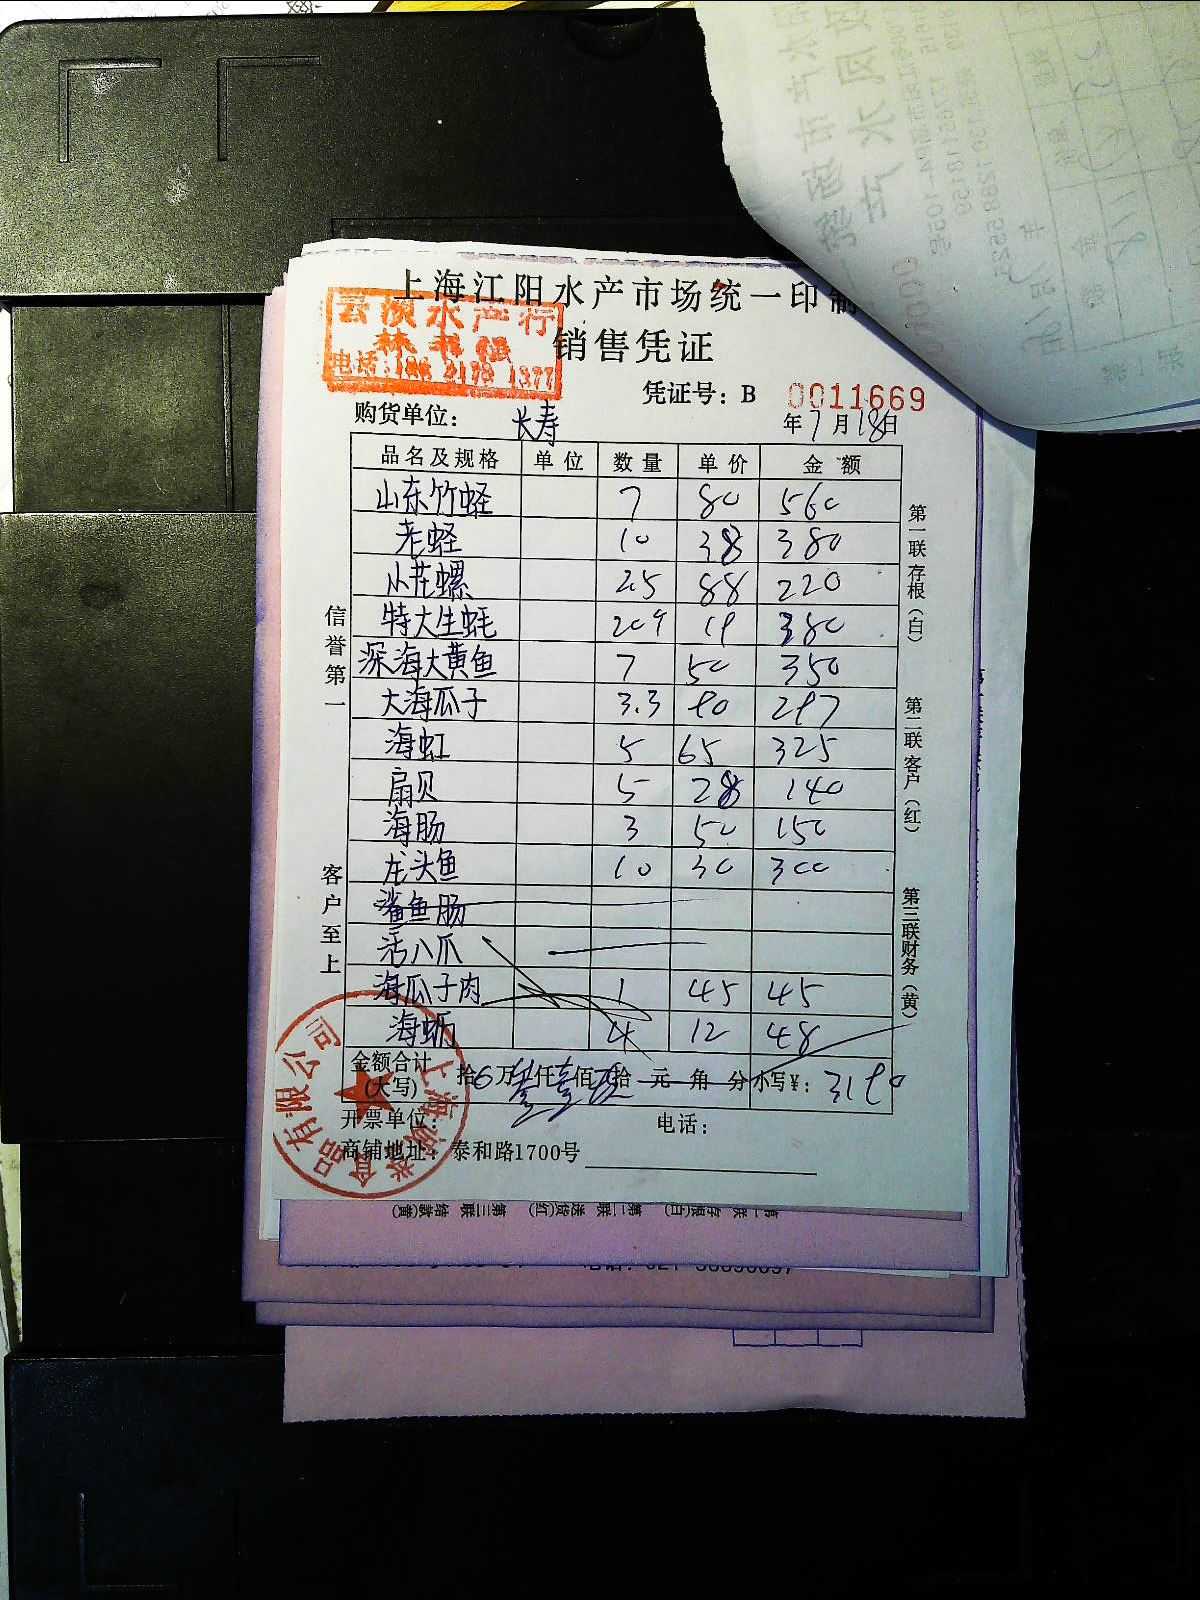 上海江阳水产市场统一印制
销售凭证
云溟水产行
电话:
凭证号: B 0011669
购货单位: 长寿 年7月18日
品名及规格 单位 数量 单价 金额
山东竹蛏 7 80 560
老蛏 10 38 380
小花螺 2.5 88 220
特大生蚝 209 19 380
深海大黄鱼 7 50 350
大海瓜子 3.3 90 297
海虹 5 65 325
扇贝 5 28 140
海肠 3 50 150
龙头鱼 10 30 300
鲨鱼肠
活八爪
海瓜子肉 1 45 45
海蛎 4 12 48
金额合计 (大写) 拾 万 叁仟壹佰 拾 元 角 分 小写¥: 3190
开票单位: 电话:
商铺地址: 泰和路1700号
信誉第一
客户至上
第一联存根(白)
第二联客户(红)
第三联财务(黄)
上海诚誉食品有限公司